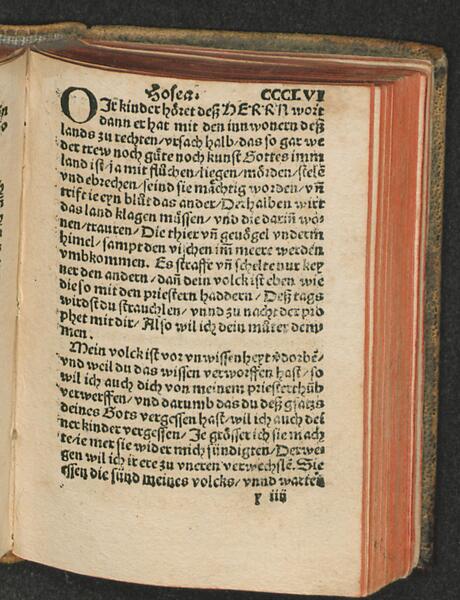 Hosea. CCCLVI
O Jr kinder höret deß HERRN wort
dann er hat mit den innwonern deß
lands zu rechten/vrsach halb/das so gar we
der trew noch güte noch kunst Gottes imm
land ist/ja mit flůchen/liegen/mörden/stelē
vnd ebrechen/seind sie mächtig worden/vñ
trifft ie eyn blůt das ander/Derhalben wirt
das land klagen müssen/vnd die dariñ wo-
nen/trauren/Die thier vñ geuögel vnderm
himel/sampt den vischen im meere werden
vmbkommen. Es straffe vñ schelte nur key
ner den andern/dañ dein volck ist eben wie
die so mit den priestern haddern/Deß tags
wirdst du strauchlen/vnnd zu nacht der pro
phet mit dir/Also wil ich dein můter dem-
men.
Mein volck ist vor vnwissenheyt v̈dorbē/
vnd weil du das wissen verworffen hast/so
wil ich auch dich von meinem priesterthůb
verwerffen/vnd darumb das du deß gsatzs
deines Gots vergessen hast/wil ich auch dei
ner kinder vergessen/Je grösser ich sie mach
te/ie mer sie wider mich sündigten/Derwe-
gen wil ich ir ere zu vneren verwechslē. Sie
essen die sünd meines volcks/vnnd warten
y iiij